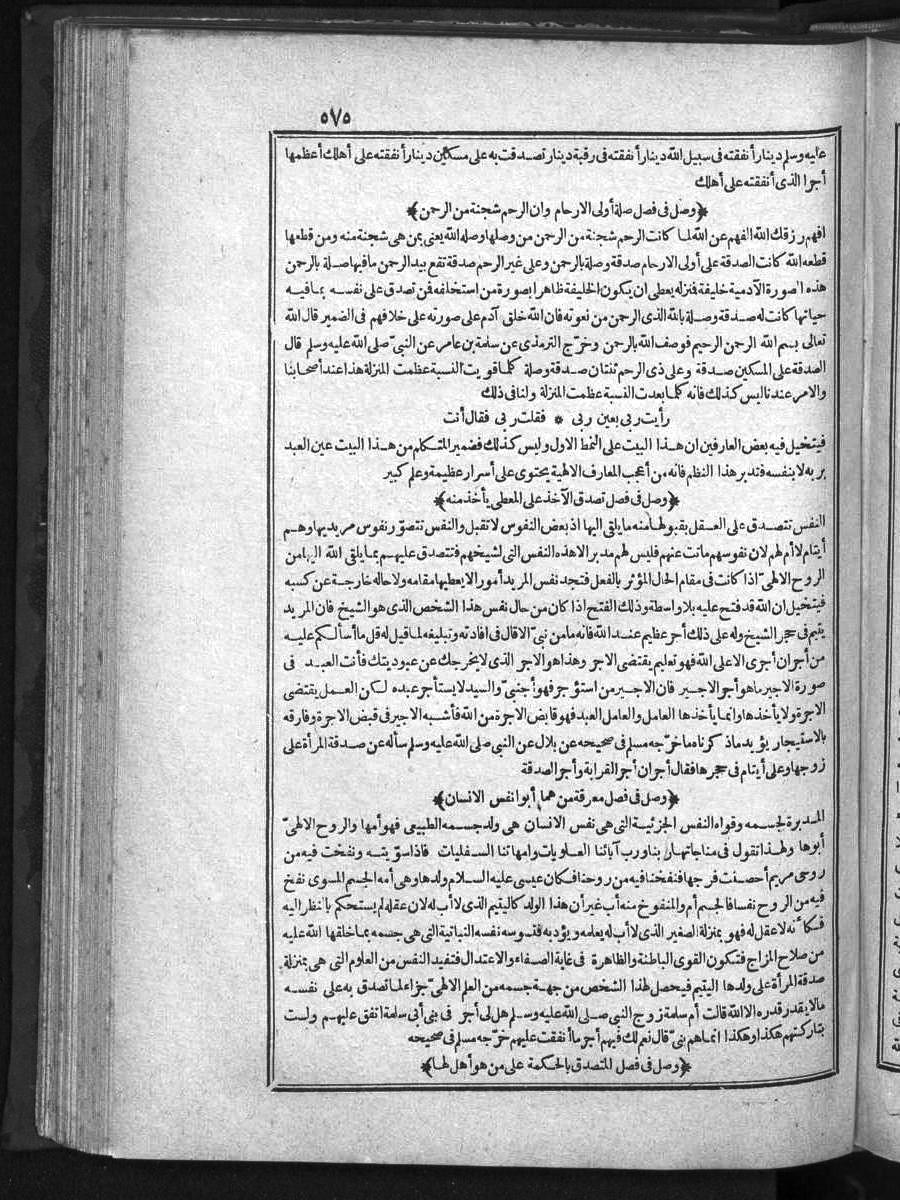 ٥٧٥
عليه وسلم دينار أنفقته فى سبيل الله دينار أنفقته فى رقبة دينار تصدقت به على مسكين دينار أنفقته على أهلك أعظمها
أجرا الذى أنفقته على أهلك
﴿وصل فى فصل صلة أولى الارحام وان الرحم شجنة من الرحمن﴾
افهم رزقك الله الفهم عن الله لما كانت الرحم شجنة من الرحمن من وصلها وصله الله يعنى بمن هى شجنة منه ومن قطعها
قطعه الله كانت الصدقة على أولى الارحام صدقة وصلة بالرحمن وعلى غير الرحم صدقة تقع بيد الرحمن ما فيها صلة بالرحمن
هذه الصورة الآدمية خليفة فنزله يعطى ان يكون الخليفة ظاهرا بصورة من استخلفه فمن تصدق على نفسه بما فيه
حياتها كانت له صدقة وصلة بالله الذى الرحمن من نعوته فان الله خلق آدم على صورته على خلافهم فى الضمير قال الله
تعالى بسم الله الرحمن الرحيم فوصف الله بالرحمن وخرّج الترمذى عن سلمة بن عامر عن النبىّ صلى الله عليه وسلم قال
الصدقة على المسكين صدقة وعلى ذى الرحم ثنتان صدقة وصلة كلما قويت النسبة عظمت المنزلة هذا عند أصحابنا
والامر عندنا ليس كذلك فانه كلما بعدت النسبة عظمت المنزلة ولنا فى ذلك
رأيت ربى بعين ربى * فقلت ربى فقال أنت
فيتخيل فيه بعض العارفين ان هذا البيت على النمط الاول وليس كذلك فضمير المتكلم من هذا البيت عين العبد
بربه لا بنفسه فتدبر هذا النظم فانه من أعجب المعارف الالهية يحتوى على أسرار عظيمة وعلم كبير
﴿وصل فى فصل تصدق الآخذ على المعطى يأخذ منه﴾
النفس تتصدق على العقل بقبولها منه ما يلقى اليها اذ بعض النفوس لا تقبل والنفس تتصوّر نفوس مريديها وهم
أيتام لا أم لهم لان نفوسهم ماتت عنهم فليس لهم مدبر الا هذه النفس التى لشيخهم فتتصدق عليهم بما يلقى الله اليها من
الروح الالهىّ اذا كانت فى مقام الحال المؤثر بالفعل فتجد نفس المريد أمورا لا يعطيها مقامه ولا حاله خارجة عن كسبه
فيتخيل ان الله قد فتح عليه بلا واسطة وذلك الفتح اذا كان من حال نفس هذا الشخص الذى هو الشيخ فان المريد
يتيم فى حجر الشيخ وله على ذلك أجر عظيم عند الله فانه ما من نبىّ الا قال فى افادته وتبليغه لما قيل له قل ما أسألكم عليه
من أجر ان أجرى الا على الله فهو تعليم يقتضى الاجر وهذا هو الاجر الذى لا يخرجك عن عبوديتك فأنت العبد فى
صورة الاجير ما هو أجر الاجير فان الاجير من استؤجر فهو أجنبىّ والسيد لا يستأجر عبده لكن العمل يقتضى
الاجرة ولا يأخذها وانما يأخذها العامل والعامل العبد فهو قابض الاجرة من الله فأشبه الاجير فى قبض الاجرة وفارقه
بالاستيجار يؤيد ما ذكرناه ما خرّجه مسلم فى صحيحه عن بلال عن النبى صلى الله عليه وسلم سأله عن صدقة المرأة على
زوجها وعلى أيتام فى حجرها فقال أجران أجر القرابة وأجر الصدقة
﴿وصل فى فصل معرفة من هما أبوا نفس الانسان﴾
المدبرة لجسمه وقواه النفس الجزئية التى هى نفس الانسان هى ولد جسمه الطبيعى فهو أمها والروح الالهىّ
أبوها ولهذا تقول فى مناجاتها ربنا ورب آبائنا العلويات وامهاتنا السفليات فاذا سوّيته ونفخت فيه من
روحى مريم أحصنت فرجها فنفخنا فيه من روحنا فكان عيسى عليه السلام ولدها وهى أمه الجسم المسوى نفخ
فيه من الروح نفسا فالجسم أم والمنفوخ منه أب غير أن هذا الولد كاليتيم الذى لا أب له لان عقله لم يستحكم بالنظر اليه
فكأنه لا عقل له فهو بمنزلة الصغير الذى لا أب له يعلمه ويؤدبه فتسوسه نفسه النباتية التى هى جسمه بما خلقها الله عليه
من صلاح المزاج فتكون القوى الباطنة والظاهرة فى غاية الصفاء والاعتدال فتفيد النفس من العلوم التى هى بمنزلة
صدقة المرأة على ولدها اليتيم فيحصل لهذا الشخص من جهة جسمه من العلم الالهىّ جزاء لما تصدق به على نفسه
ما لا يقدر قدره الا الله قالت أم سلمة زوج النبى صلى الله عليه وسلم هل لى أجر فى بنى أبى سلمة انفق عليهم ولست
بتاركتهم هكذا وهكذا انما هم بنىّ قال نعم لك فيهم أجر ما أنفقت عليهم خرّجه مسلم فى صحيحه
﴿وصل فى فصل المتصدق بالحكمة على من هو أهل لها﴾